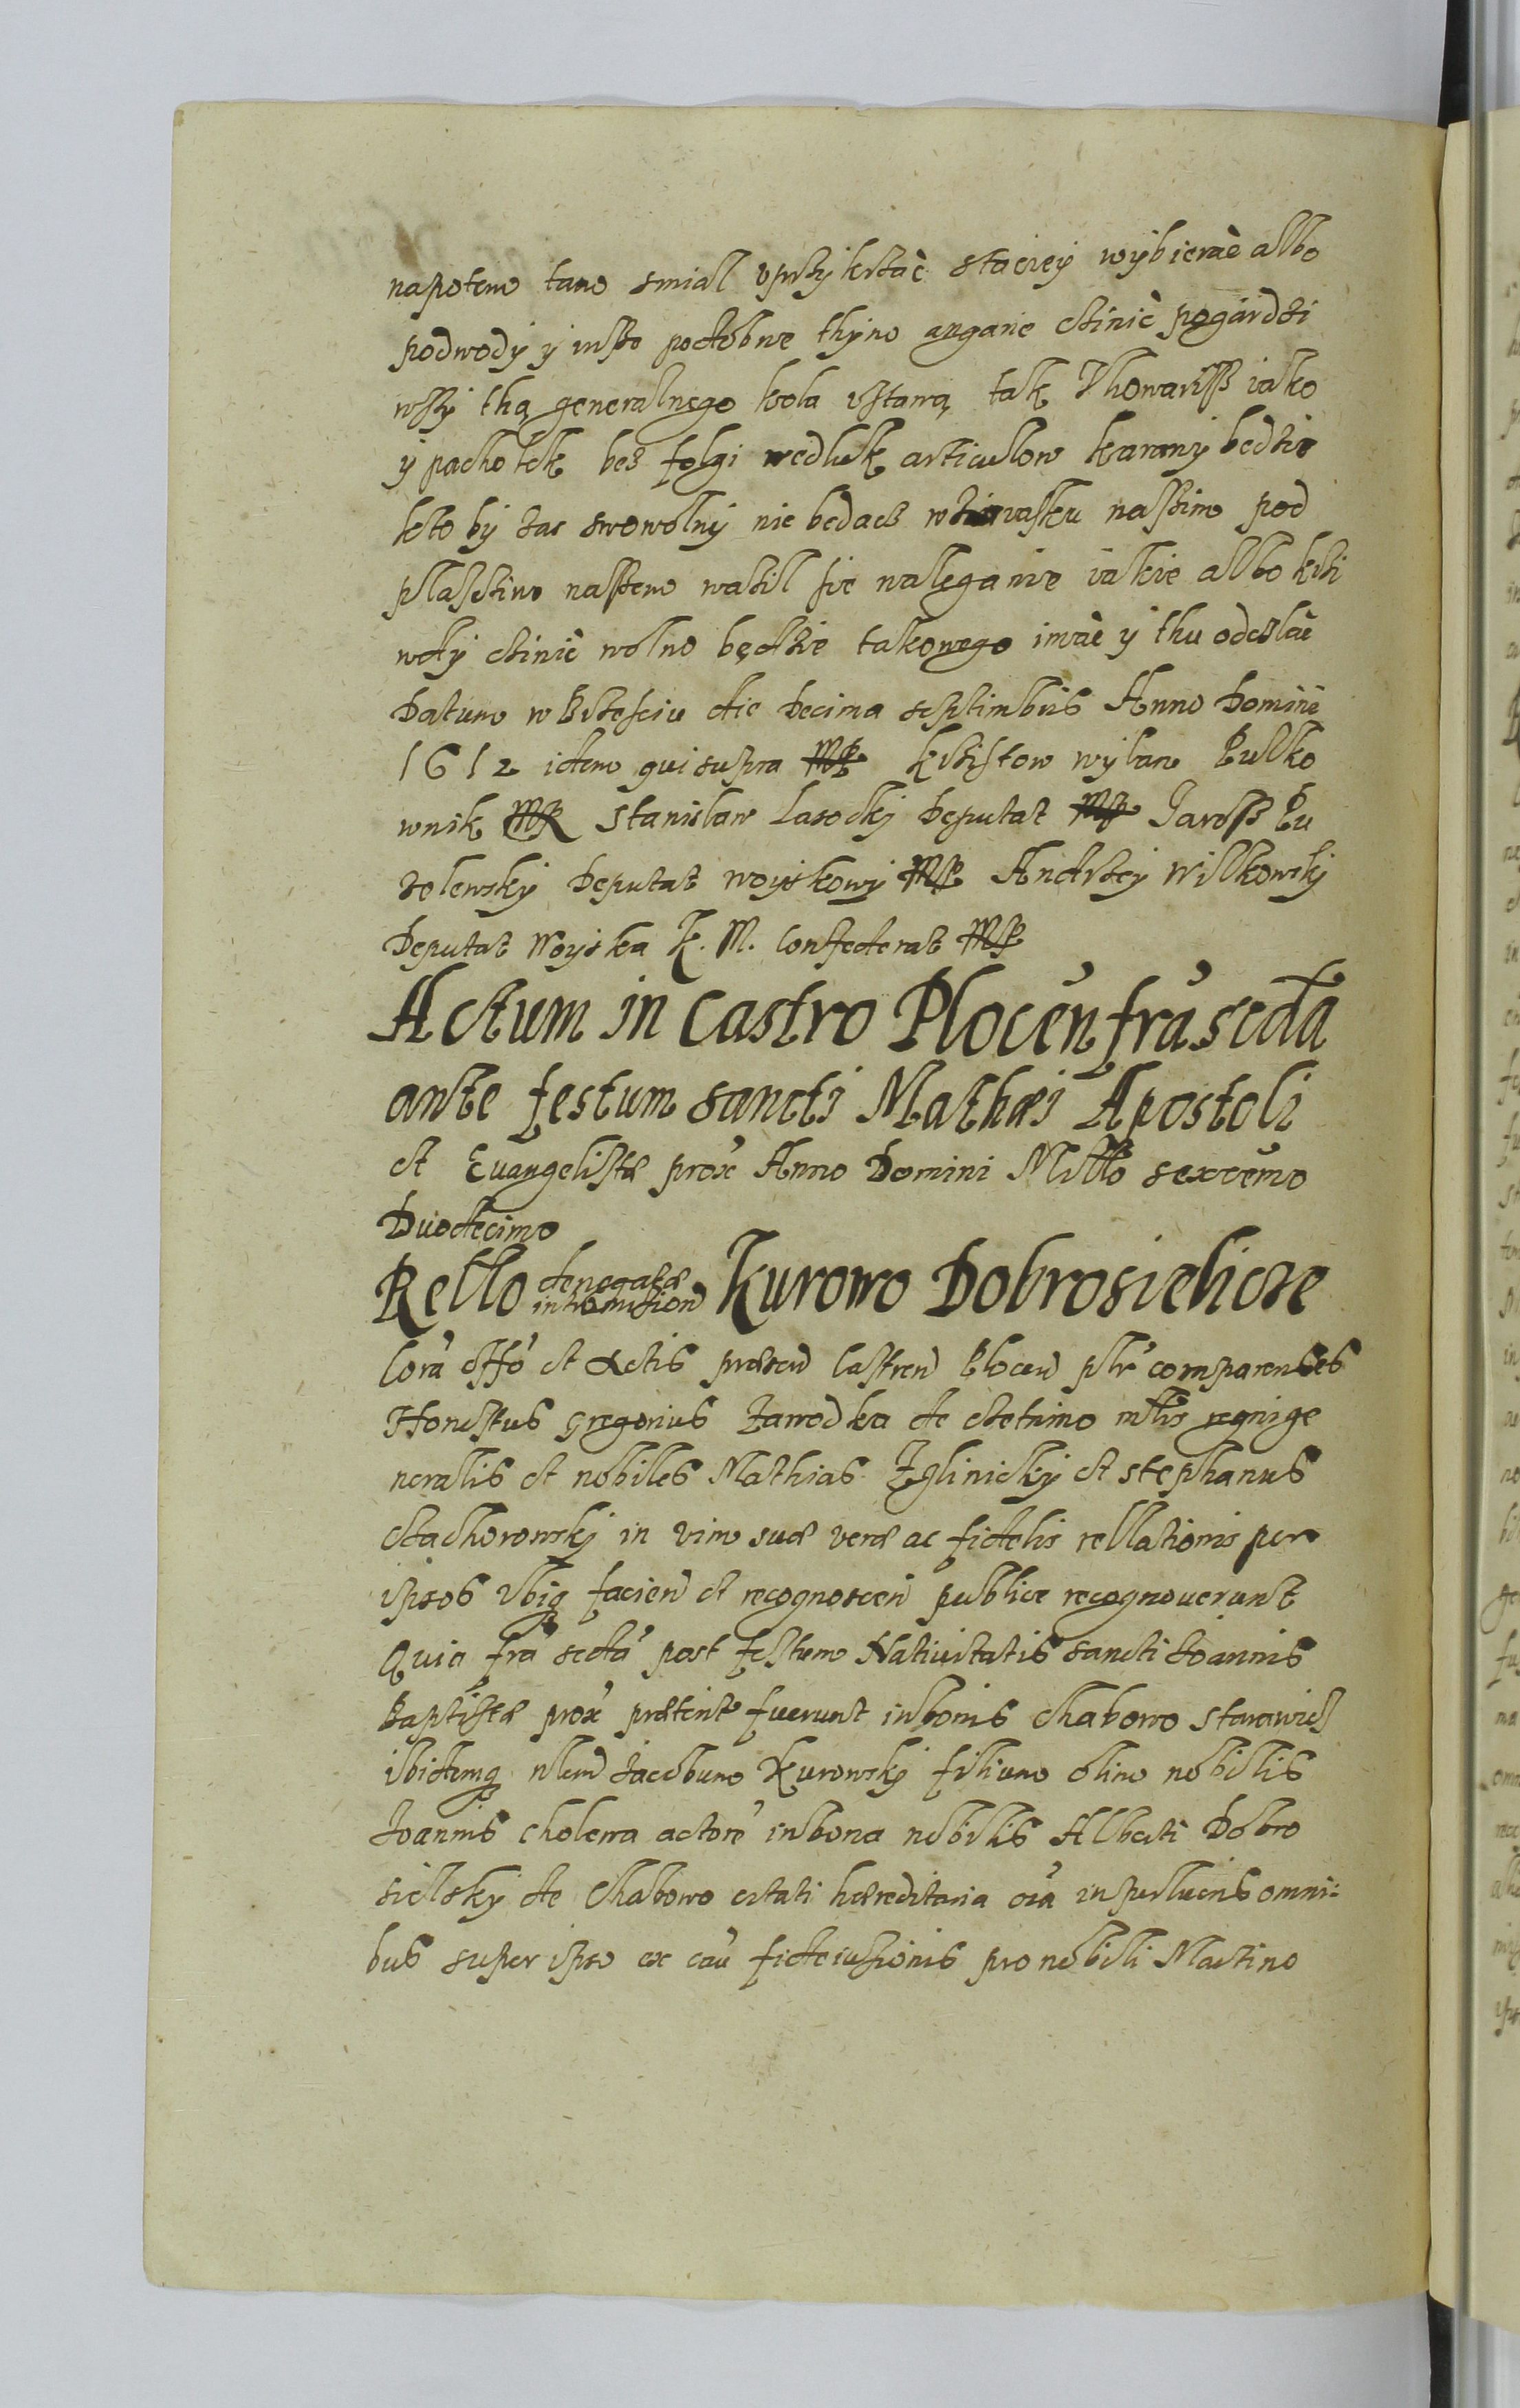 napotem tam smial uprzykrzać staciey wybierać albo
podwody y insze podobne thym angarie czinić pogardzi
wszy thą generalnego kola ustawą tak Thowarisz iako
y pacholek bez folgi wedluk articulow karany bedzie
kto by zas swowolny nie bedacz w ziwasku naszim pod
plasczim naszem wazil sie naleganie iakie albo krzi
wdy czinić wolno będzie takowego imać y thu odeslać
Datum w Brzesciu die Decima septimbris Anno Domini
1612 idem qui supra MP Krzistow wylam Pulko
wnik MP Stanislaw Lasocky Deputat MP Jarosz Pu
zolewsky Deputat woyskowy MP Andrzey Wilkowsky
Deputat Woyska K. M. Confederat MP
Actum in Castro Plocen fra secda
ante festum sancti Mathæi Apostoli
et Euangelistæ prox Anno Domini Millo sexcemo
Duodecimo
Rello denegatæ intromission Kurowo Dobrosielicze
Cora offo et Actis præsen Castren Plocen plr comparentes
Honestus Gregorius Zawodka de mlis regni ge
neralis et nobiles Mathias Zglinicky et Stephanus
Czachorowsky in vim suæ veræ ac fidelis rellationis per
ipsos ubiq facien et recognoscen publice recognoverunt
Quia fra secda post festum Nativitatis sancti Joannis
Baptistæ prox præterite fuerunt in bonis Chabowo Starawiesz
ibidemq nlem Jacobum Kurowsky filium olim nobilis
Joannis cholewa actore in bona nobilis Alberti Dobro
sielsky de Chabowo citati hæreditaria oia in perlucris omni:
bus super ipso ex cau fideiussionis pro nobili Martino